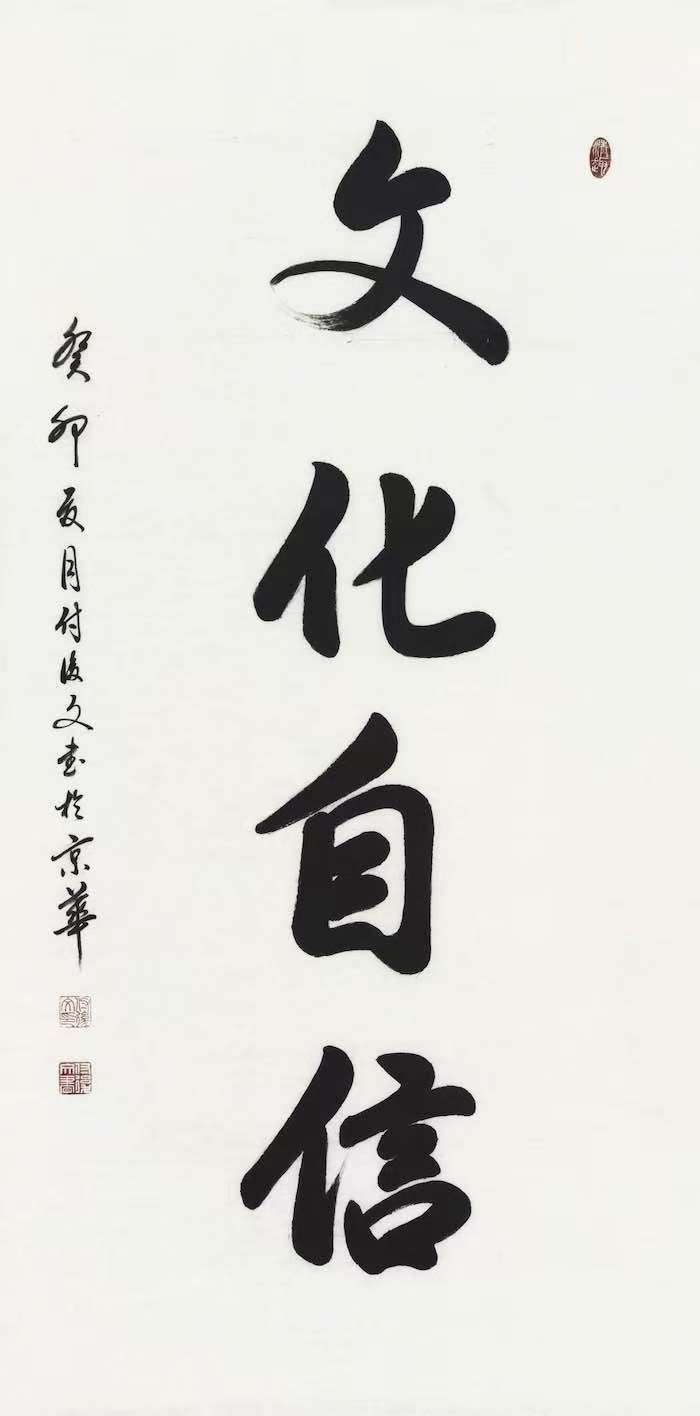 文化自信
癸卯夏月付俊文书於京華